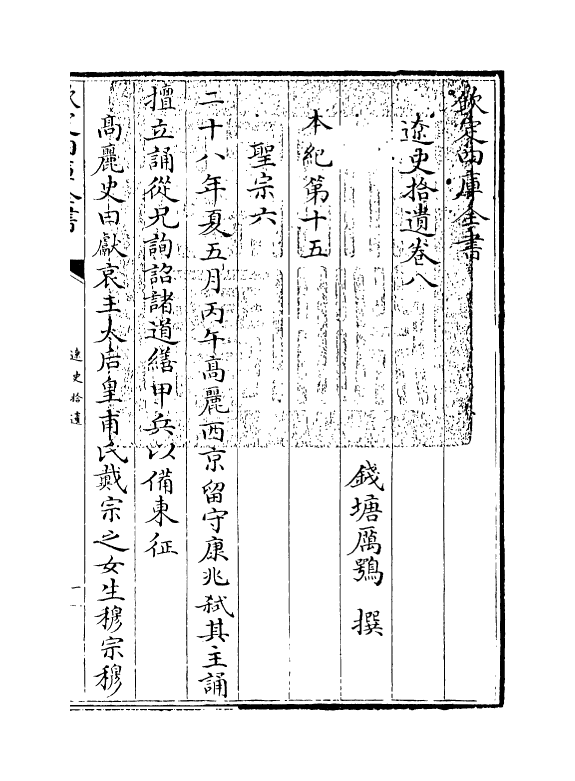 欽定四庫全書
遼史拾遺卷八
錢塘厲鶚撰
本紀第十五
聖宗六
二十八年夏五月丙午高麗西京留守康兆弒其主誦
擅立誦從兄詢詔諸道繕甲兵以備東征
高麗史曰獻哀王太后皇甫氏戴宗之女生穆宗穆
欽定四庫全書
遼史拾遺
一